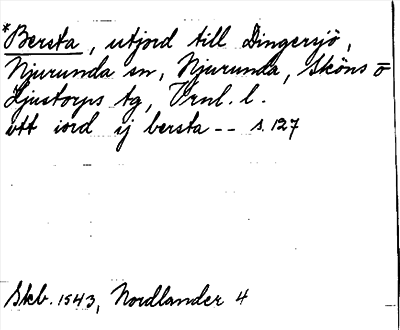 *Bersta, utjord till Dingersjö,
Njurunda sn, Njurunda, Sköns o
Ljustorps tg, Vrnl. l.
vtt iord ij bersta -- s. 127
Skb. 1543, Nordlander 4